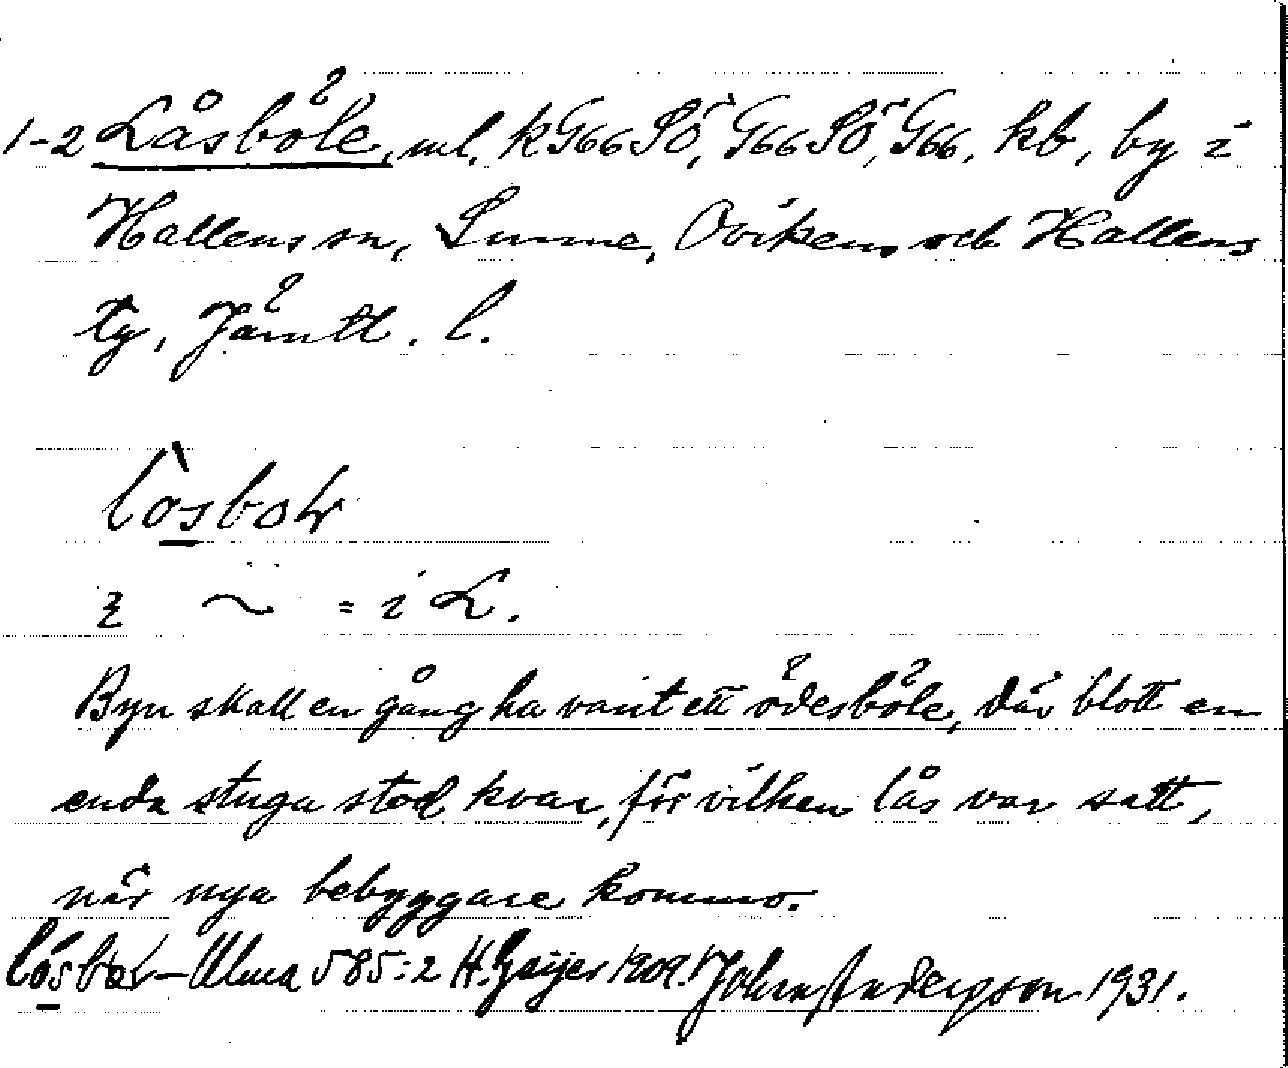 1-2 Låsböle, ml. k G66 SÖ, G66 SÖ, G66, kb, by i
Hallens sn, Sunne, Ovikens och Hallens
tg, Jämtl. l.
låsbol
i L.
Byn skall en gång ha varit ett ödesböle, där blott en
enda stuga stod kvar, för vilken lås var satt,
när nya bebyggare kommo.
Ulma 585:2 H. Geijer 1909. John Anderson 1931.